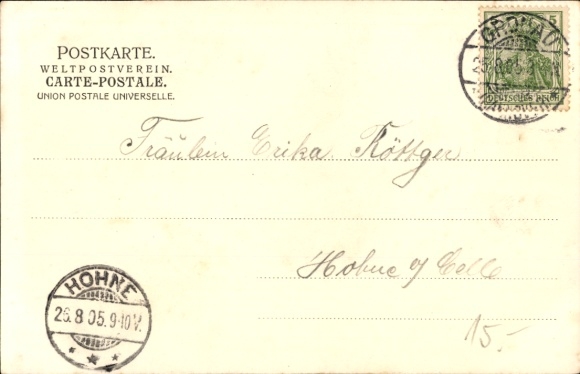 POSTKARTE.
WELTPOSTVEREIN.
CARTE-POSTALE.
UNION POSTALE UNIVERSELLE.
5
GRONAU
DEUTSCHES REICH
Fräulein Erika Röttger
Hohne b/ Celle
HOHNE
26.8.05.9-10V.
15.-